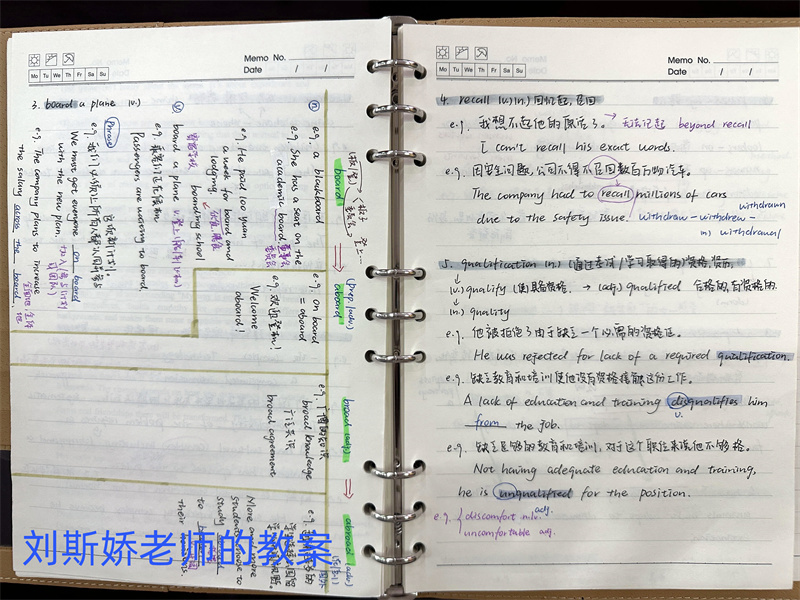 Memo No.
Mo Tu We Th Fr Sa Su
Date / /
3. board a plane (v.)
board
n
e.g. a blackboard
e.g. She has a seat on the
academic board
e.g. He paid 100 yuan
a week for board and
lodging.
boarding school
v
board a plane
Passengers are waiting to board
Phrase
We must get everyone on board
with the new plan.
e.g. The company plans to increase
the salary across the board.
(prep./adv.)
aboard
e.g. on board
= aboard
e.g. 欢迎登机!
Welcome
aboard!
broad (adj.)
e.g. 广博的知识
broad knowledge
广泛共识
broad agreement
abroad (adv.)
More and more
students choose to
study abroad
刘斯娇老师的教案
Memo No.
Mo Tu We Th Fr Sa Su
Date / /
4. recall (v.)(n.) 回忆起,召回
e.g. 我想不起他的原话了。→ 无法记起 beyond recall
I can't recall his exact words.
e.g. 因安全问题,公司不得不召回数百万辆汽车。
The company had to recall millions of cars
due to the safety issue. withdraw - withdrew -
withdrawn
n) withdrawal
5. qualification (n.) (通过考试/学习取得的)资格,资历
(v.) qualify (使)具备资格. → (adj.) qualified 合格的,有资格的.
(n.) quality
e.g. 他被拒绝了由于缺乏一个必需的资格证。
He was rejected for lack of a required qualification.
e.g. 缺乏教育和培训使他没有资格接触这份工作。
A lack of education and training disqualifies him
v.
from the job.
e.g. 缺乏足够的教育和培训,对于这个职位来说他不够格。
Not having adequate education and training,
he is unqualified for the position.
e.g. discomfort n./v.
adj.
uncomfortable adj.